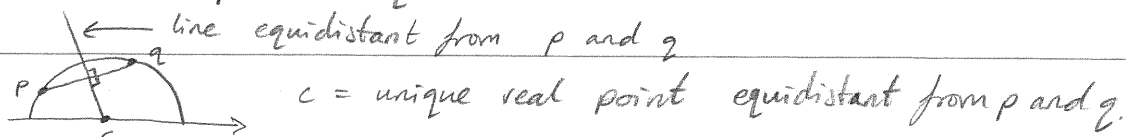 line equidistant from p and q
q
p
c = unique real point equidistant from p and q.
c